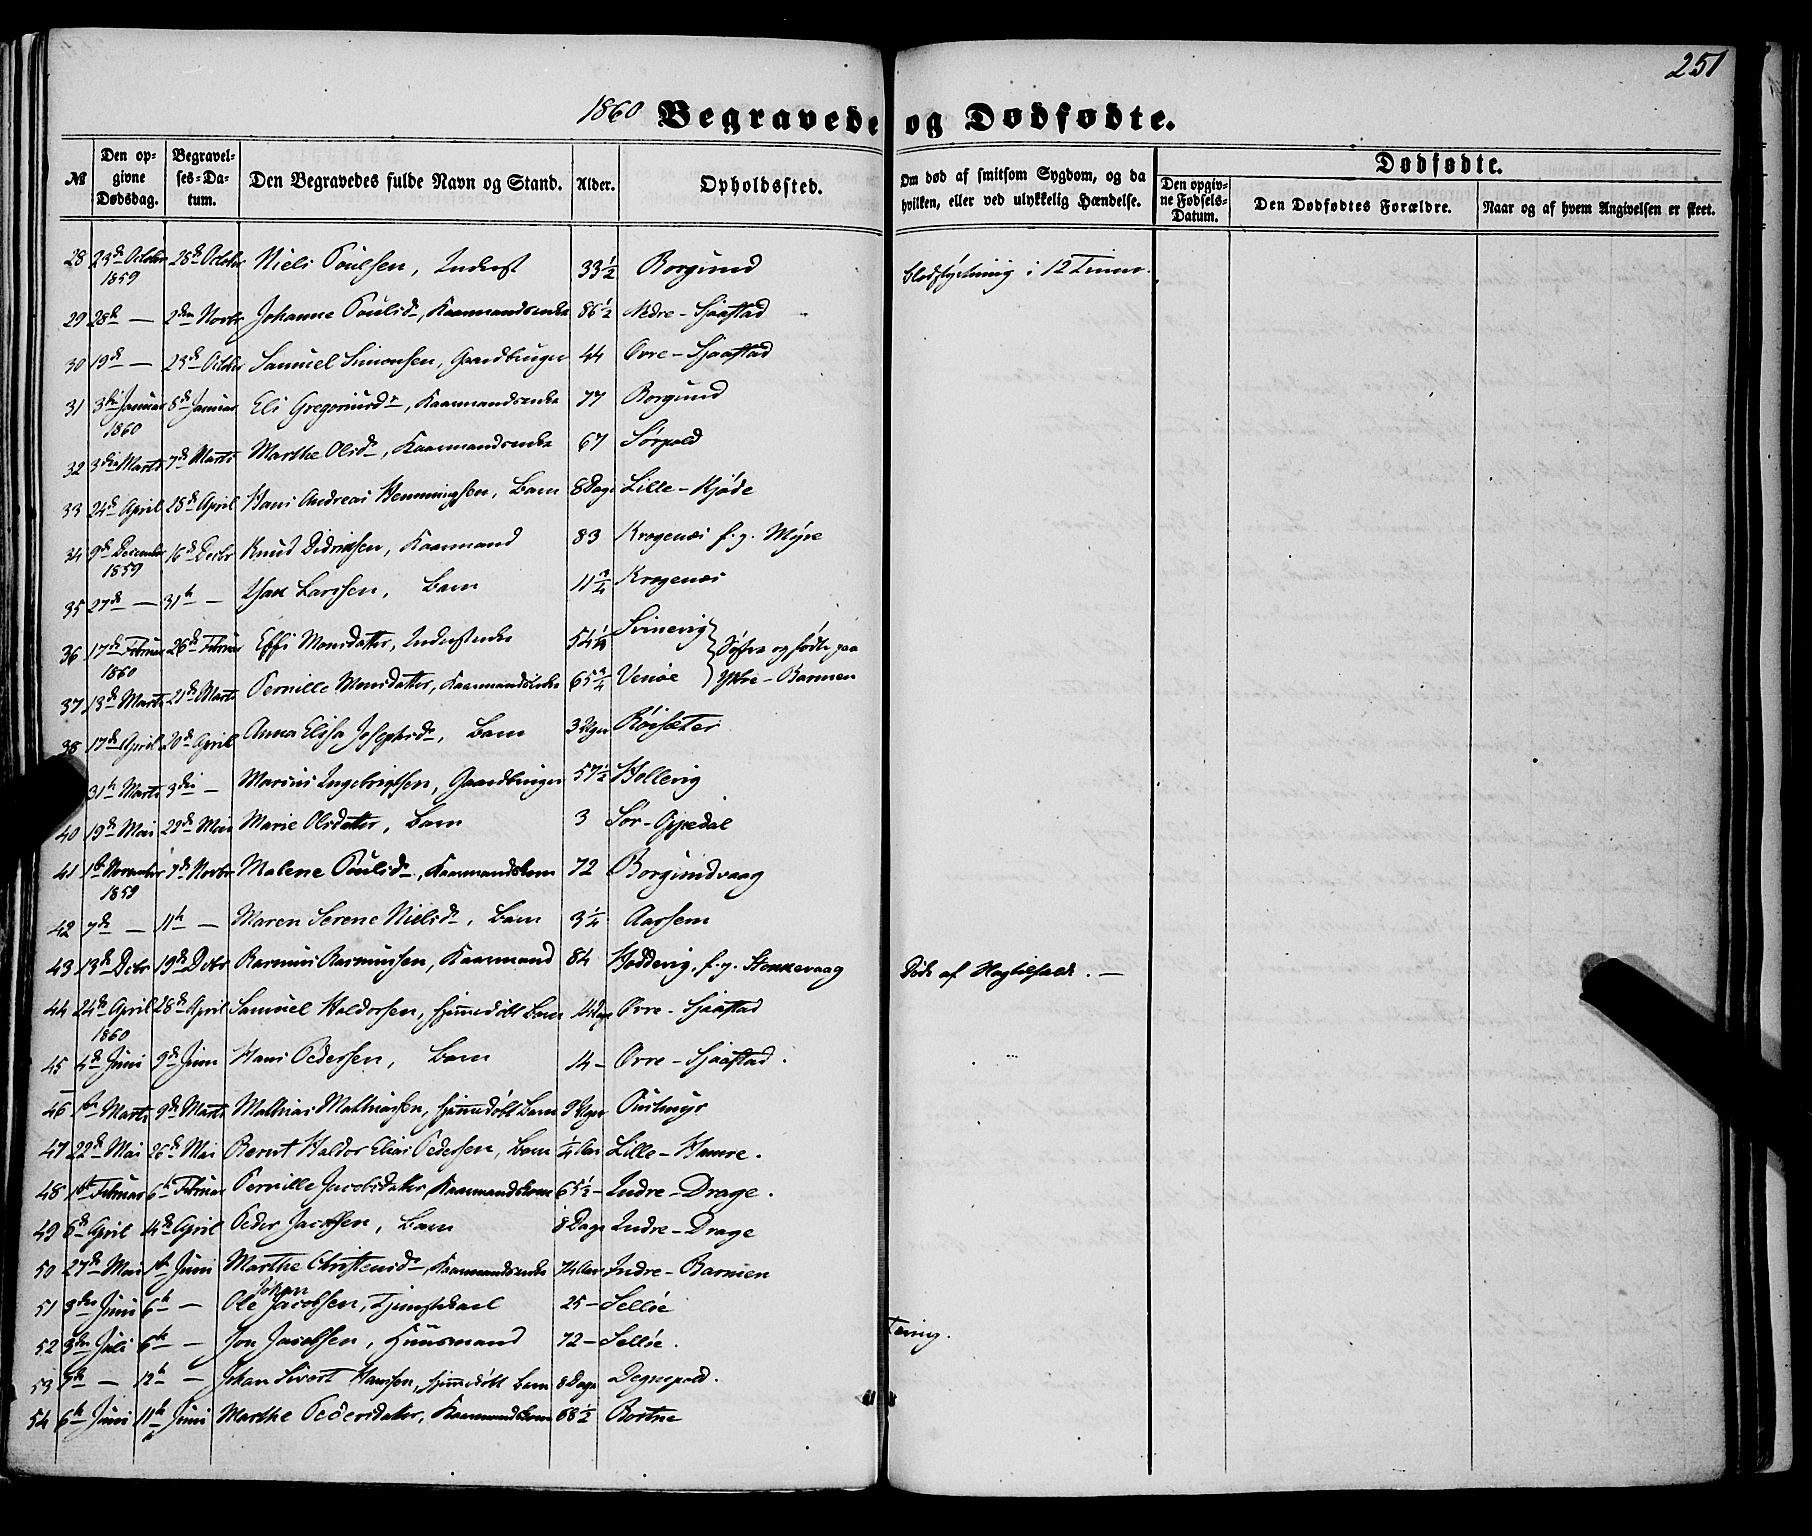 251
1860 Begravede og Dødfødte.
№ Den opgivne Dødsdag. Begravelses-Datum. Den Begravedes fulde Navn og Stand. Alder. Opholdssted. Om død af smitsom Sygdom, og da hvilken, eller ved ulykkelig Hændelse. Dødfødte. Den opgivne Fødsels-Datum. Den Dødfødtes Forældre. Naar og af hvem Angivelsen er skeet.
28 23de October 1859 28de October Niels Poulsen, Inderst 33½ Borgund Blodstyrtning i 12 Timer.
29 28de — 2den Novbr Johanne Poulsdr, Kaarmandsenke 86½ Nedre-Sjaastad
30 19de — 23de October Samuel Simonsen, Gaardbruger 44 Øvre-Sjaastad
31 3die Januar 1860 8de Januar Eli Gregoriusdr, Kaarmandsenke 77 Borgund
32 3die Marts 7de Marts Marthe Olsdr, Kaarmandsenke 67 Sørpold
33 24de April 28de April Hans Andreas Henningsen, Barn 8 Dage Lille-Kjøde
34 9de December 1859 16de Decbr Knud Didriksen, Kaarmand 83 Kragenæs f. g. Myre
35 27de — 31te — Isak Larssen, Barn 11¾ Kragenæs
36 17de Februar 1860 26de Februar Effi Monsdatter, Inderstenke 54½ Svinevig } Søstre og fødte paa
37 13de Marts 21de Marts Pernille Monsdatter, Kaarmandsenke 65¾ Venøe } Ytre-Barmen
38 17de April 20de April Anna Elisa Josephsdr, Barn 3 Uger Røisæter
31te Marts 3die — Marius Ingebrigtsen, Gaardbruger 57½ Hollevig
40 19de Mai 22de Mai Marie Olsdatter, Barn 3 Sør-Oppedal
41 1ste November 1859 7de Novbr Malene Poulsdr, Kaarmandskone 72 Borgundvaag
42 7de — 11te — Maren Serene Nielsdr, Barn 3¼ Aarsem
43 13de Debr 19de Debr Rasmus Rasmussen, Kaarmand 84 Hoddevig, f. g. Stokkevaag Døde af
44 24de April 1860 28de April Samuel Haldorsen, hjemmedøbt Barn Dage Øvre-Sjaastad
45 4de Juni 9de Juni Hans Pedersen, Barn 14 — Øvre-Sjaastad.
46 1ste Marts 9de Marts Mathias Mathiassen, hjemmedøbt Barn 9 Uger
47 22de Mai 26de Mai Bernt Haldor Elias Pedersen, Barn ¼ Aar Lille-Hamre.
48 1ste Februar 6te Februar Pernille Jacobsdatter, Kaarmandskone 65½ — Indre-Drage.
49 6de April 14de April Peder Jacobsen, Barn 8 Dage Indre-Drage
50 27de Mai 1ste Juni Marthe Christensdr, Kaarmandsenke 74 Aar Indre-Barmen
51 3die Juni 6te — Ole Johan Jacobsen, Tjenestekarl 25 — Selløe
52 3die Juli 6te — Jon Jacobsen, Huusmand 72 — Selløe. Tæring.
53 — 12te — Johan Sivert Hanssen, hjemmedøbt Barn 8 Dage Degnepold.
54 6te Juni 11te Juni Marthe Pedersdatter, Kaarmandskone 68½ Bortne